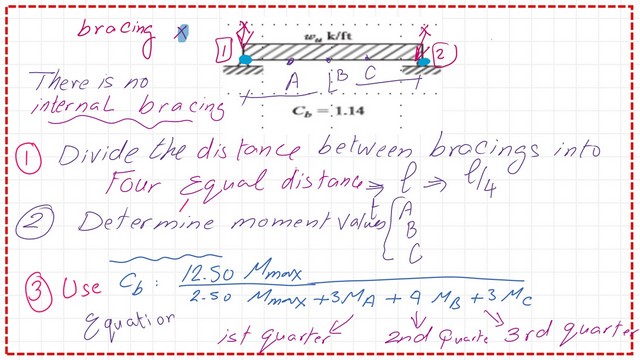 bracing x
x x
1 w_u k/ft 2
A B C
There is no
internal bracing
C_b = 1.14
1 Divide the distance between bracings into
Four Equal distance → l ⇒ l/4
2 Determine moment values { A
B
C
3 Use C_b : 12.50 Mmax
2.50 Mmax + 3 M_A + 4 M_B + 3 M_C
Equation
1st quarter 2nd Quarte 3rd quarter